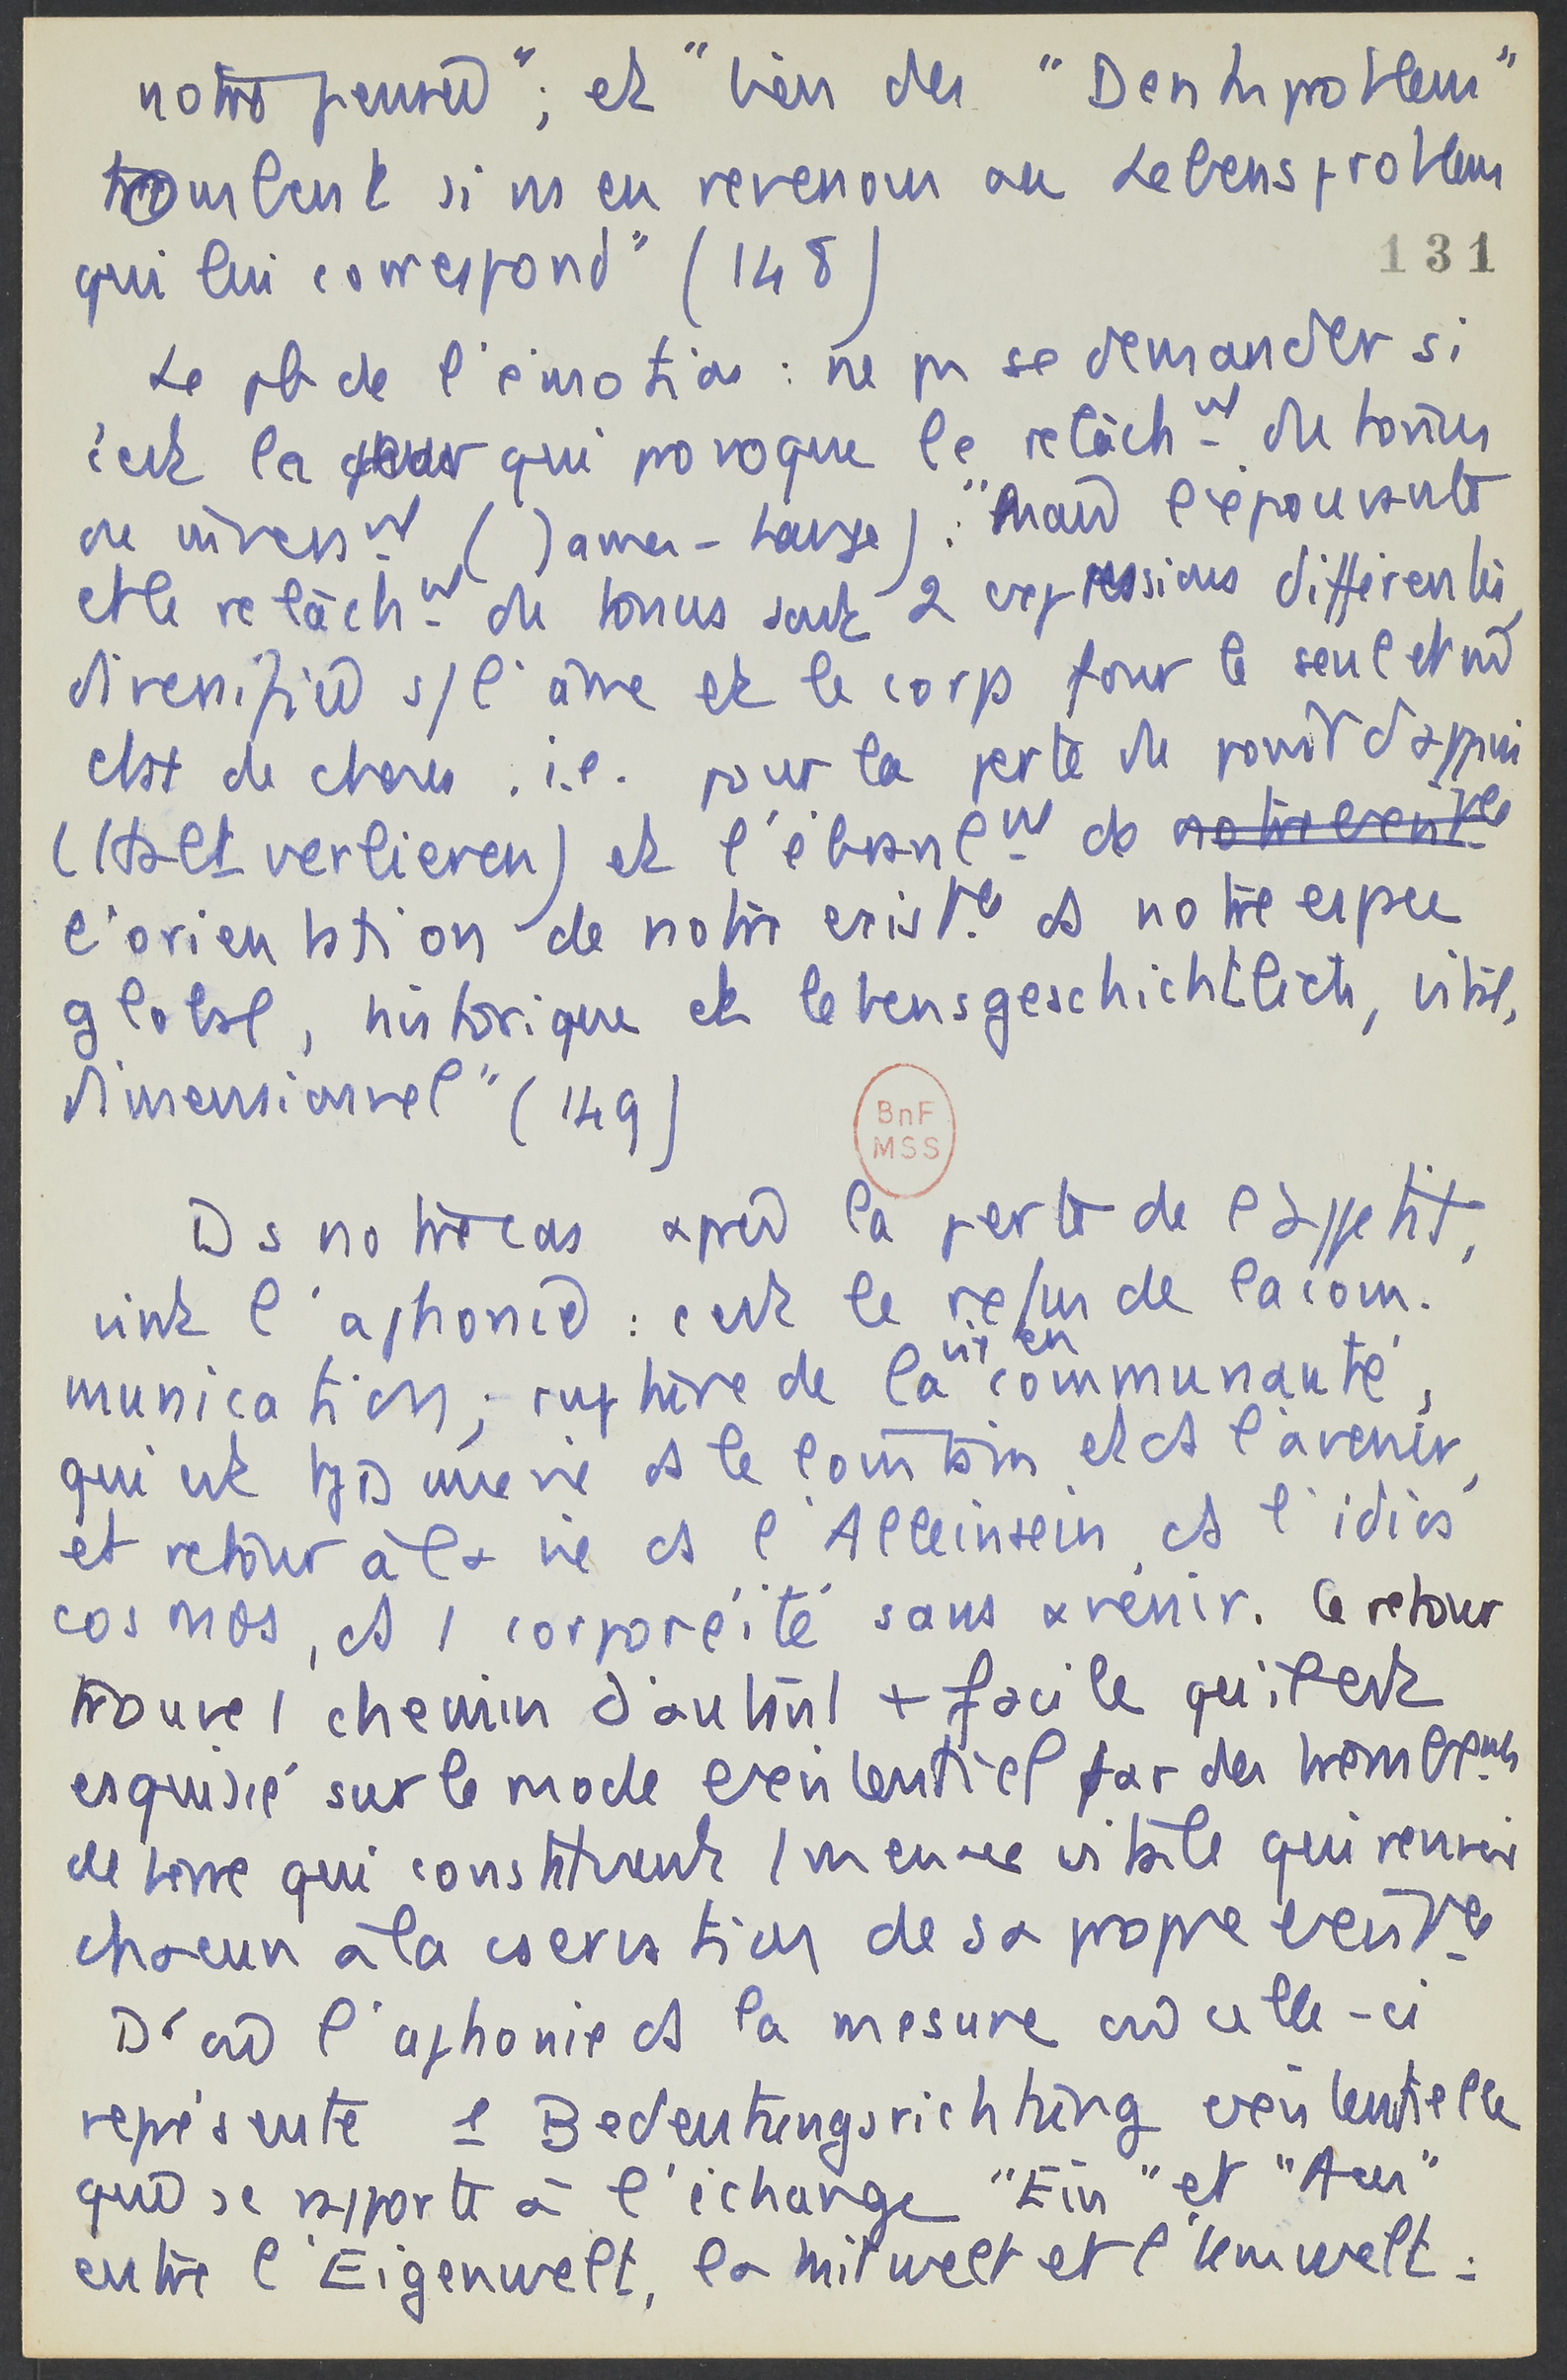 notre pensée" ; et "bien des "Denkproblem"
tombent si ns en revenons au Lebensproblem
qui lui correspond" (148)
131
Le pb de l'émotion : ne pas se demander si
c'est la peur qui provoque le relâcht du tonus
ou inverst (James-Lange) : "Mais l'épouvante
et le relâcht du tonus sont 2 expressions différentes,
diversifiées s/ l'âme et le corps pour le seul et m̂
état de choses . i.e. pour la perte de point d'appui
(Halt verlieren) et l'ébranlt de notre existce
l'orientation de notre existce ds notre espace
global, historique et lebensgeschichtlich, vital,
dimensionnel" (149)
BnF
MSS
Ds notre cas après la perte de l'appétit,
vint l'aphonie : c'est le refus de la com-
munication ; rupture de la vie en communauté,
qui est tjs une vie ds le lointain et ds l'avenir,
et retour à la vie ds l'Alleinsein, ds l'idios
cosmos, ds 1 corporéité sans avenir. Ce retour
trouve 1 chemin d'autant + facile qu'il est
esquissé sur le mode existentiel par des tremblemts
de terre qui constituent 1 menace vitale qui renvoie
chacun à la conservation de sa propre existce
D'où l'aphonie ds la mesure où celle-ci
représente 1 Bedeutungsrichtung existentielle
qui se rapporte à l'échange "Ein" et "Aus"
entre l'Eigenwelt, la Mitwelt et l'Umwelt :